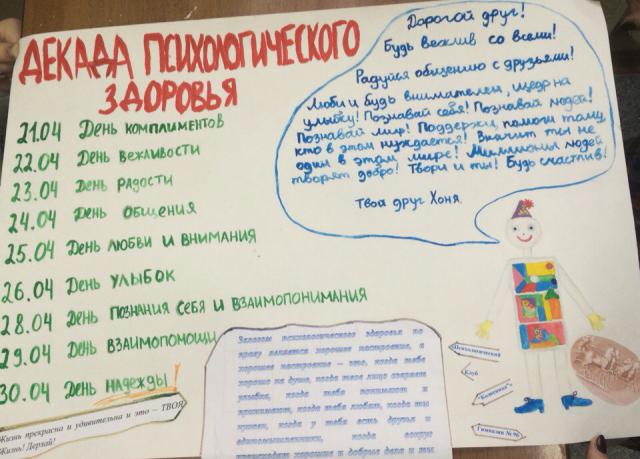 ДЕКАДА ПСИХОЛОГИЧЕСКОГО
ЗДОРОВЬЯ
21.04 ДЕНЬ КОМПЛИМЕНТОВ
22.04 ДЕНЬ ВЕЖЛИВОСТИ
23.04 ДЕНЬ РАДОСТИ
24.04 ДЕНЬ ОБЩЕНИЯ
25.04 ДЕНЬ ЛЮБВИ И ВНИМАНИЯ
26.04 ДЕНЬ УЛЫБОК
28.04 ДЕНЬ ПОЗНАНИЯ СЕБЯ И ВЗАИМОПОНИМАНИЯ
29.04 ДЕНЬ ВЗАИМОПОМОЩИ
30.04 ДЕНЬ НАДЕЖДЫ!
Жизнь прекрасна и удивительна и это – ТВОЯ
Жизнь! Дерзай!
Дорогой друг!
Будь вежлив со всеми!
Радуйся общению с друзьями!
Люби и будь внимателен, щедр на
улыбку! Познавай себя! Познавай людей!
Познавай мир! Поддержи, помоги тому,
кто в этом нуждается! Значит ты не
один в этом мире! Миллионы людей
творят добро! Твори и ты! Будь счастлив!
Твой друг Хоня.
Залогом психологического здоровья по
праву является хорошее настроение, а
хорошее настроение – это, когда тебе
хорошо на душе, когда твое лицо озаряет
улыбка, когда тебя понимают и
принимают, когда тебя любят, когда ты
нужен, когда у тебя есть друзья и
единомышленники, когда вокруг
происходят хорошие и добрые дела и ты
Психологический
Клуб
Гимназия № 96